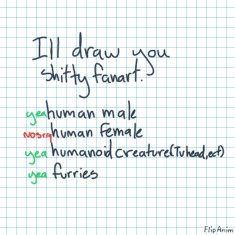 I'll draw you
shitty fanart.
yea human male
human female
yea humanoid creature(Tv head, ect)
yea furries
FlipAnim